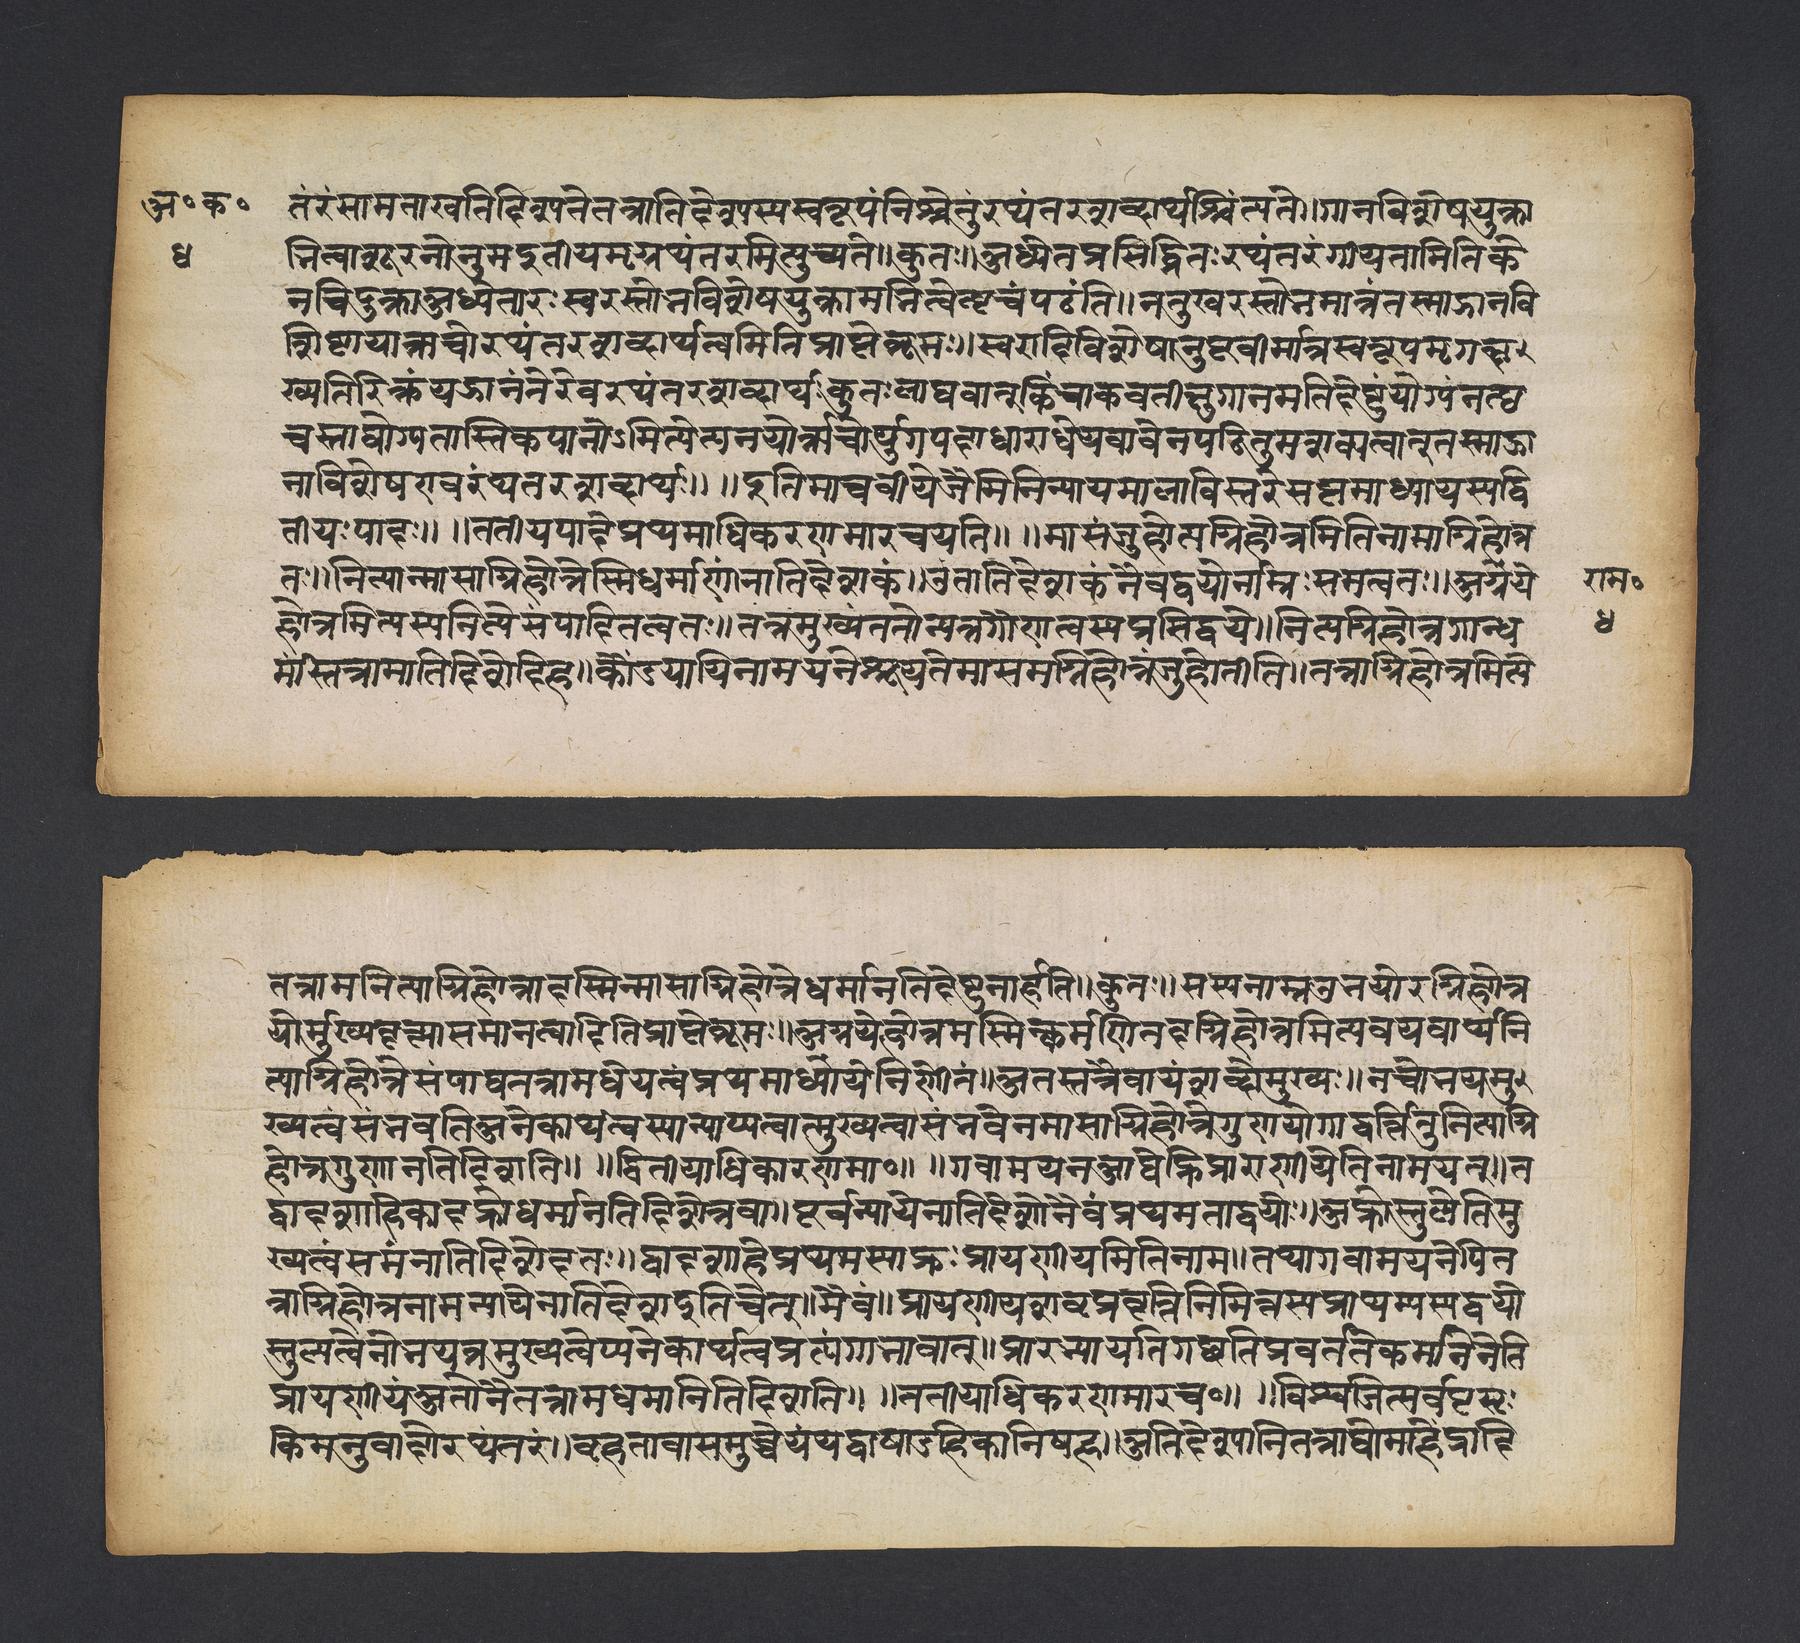 अ॰क॰
४
तंरंसामनाखतिदिश्यतेतत्रातिदेश्यस्यस्वरूपंनिश्चेतुंरथंतरशब्दार्थश्चिंत्यते॥गानविशेषयुक्ता
भित्वाशूरनोनुमइतीयमृग्रथंतरमित्युच्यते॥कुतः॥अध्येतप्रसिद्धितःरथंतरंगीयतामितिके
नचिदुक्ताअध्येतारःस्वरस्तोभविशेषयुक्तामभित्वेत्यृचंपठंति॥नतुस्वरस्तोभमात्रंतस्माज्ञानवि
शिष्टायाऋचोरथंतरशब्दार्थत्वमितिप्राप्तेब्रूमः॥स्वरादिविशेषानुपूर्वीमात्रस्वरूपमृगक्षर
व्यतिरिक्तंयज्ञानंतेदेवरथंतरशब्दार्थःकुतःलाघवात्किंचाकवतीषुगानमतिदेष्टुंयोग्यंनत्वृ
चस्तायोग्यतास्तिकयानोऽभित्येत्यनयोर्ऋचोर्युगपदाधाराधेयभावेनपठितुमशक्यत्वात्तस्माज्ञा
नाविशेषएवरंथतरशब्दार्थः॥ ॥इतिमाधवीयेजैमिनिन्यायमालाविस्तरेसप्तमाध्यायस्यद्वि
तीयःपादः॥ ॥ततीयपादेप्रथमाधिकरणमारचयति॥ ॥मासंजुहोत्यग्निहोत्रमितिनामाग्निहोत्र
तः॥नित्यान्मासाग्निहोत्रेस्मिधर्माणांनातिदेशकं॥उतातिदेशकंनैवद्वयोर्नाम्नःसमत्वतः॥अग्नये
होत्रमित्यस्यनित्येसंपादितत्वतः॥तत्रमुख्यंततोन्यत्रगौणत्वस्यप्रसिद्धये॥नित्याग्निहोत्रगान्ध
र्मांस्तन्नामातिदिशेदिह॥कौंडपायिनामयनेश्रूयतेमासमग्निहोत्रंजुहोतीति॥तत्राग्निहोत्रमित्ये
राम॰
४
तन्नामनित्याग्निहोत्रादस्मिन्मासाग्निहोत्रेधर्मानतिदेष्टुनार्हति॥कुतः॥सस्यनाम्नउभयोरग्निहोत्र
योर्मुख्यवृत्यासमानत्वादितिप्राप्तेब्रूमः॥अग्नयेहोत्रमस्मिन्कर्मणितदग्निहोत्रमित्यवयवार्थनि
त्याग्निहोत्रेसंपाद्यतन्नामधेयत्वंप्रथमाध्यायेनिर्णीतं॥अतस्तत्रैवायंशब्दोमुख्यः॥नचोभयमु
ख्यत्वंसंभवतिअनेकार्थत्वस्यान्याय्यत्वात्मुख्यत्वासंभवेनमासाग्निहोत्रेगुणयोगाद्वर्त्तितुंनित्याग्नि
होत्रगुणानतिदिशति॥ ॥द्वितीयाधिकारणमा॰॥ ॥गवामयनआद्येह्निप्रायणीयेतिनामयत्॥त
द्वादशाहिकादह्नोधर्मानतिदिशेन्नवा॥पूर्वन्यायेनातिदेशोनैवंप्रथमताद्वयोः॥अह्नोस्तुल्येतिमु
ख्यत्वंसमंनातिदिशेदतः॥द्वादशाहेप्रथमस्याह्नःप्रायणीयमितिनाम॥तथागवामयनेपित
त्राग्निहोत्रनामन्यायेनातिदेशइतिचेत्॥मैवं॥प्रायणीयशब्दप्रवृत्तिनिमित्तस्यप्राथम्यस्यद्वयो
स्तुल्यत्वेनोभयत्रमुख्यत्वेप्यनेकार्थत्वप्रत्यंगाभावात्॥प्रारभ्यायतिगच्छतिप्रवर्ततेकर्मानेनेति
प्रायणीयंअतोनैतन्नामधर्मानितिदिशति॥ ॥ततीयाधिकरणमारच॰॥ ॥विश्वजित्सर्वपृष्ठः
किमनुवादोरथंतरं॥बृहतावासमुच्चेयंयद्वाषाऽहिकानिषट्॥अतिदेश्यानितत्राद्योमाहेंद्रादि